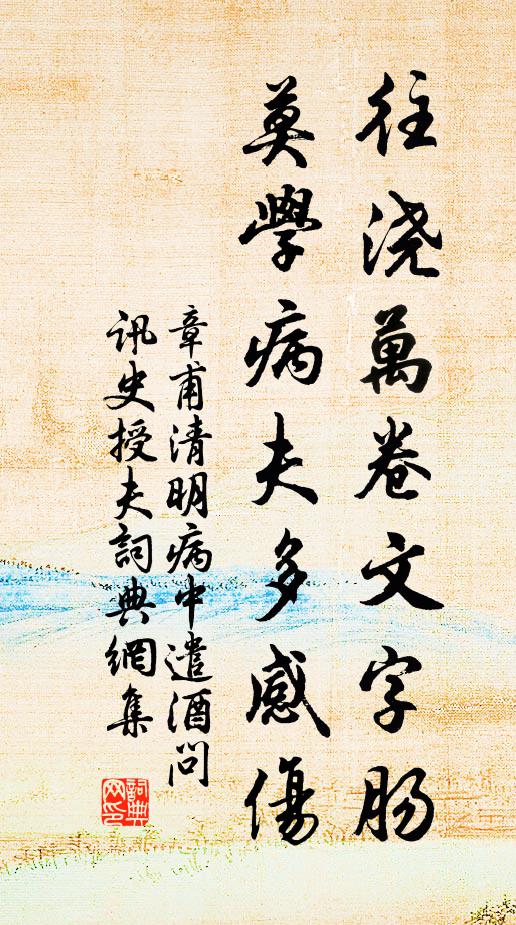 往浇萬卷文字肠
莫學病夫多感傷
章甫清明病中遣酒問
訊史授夫詞典網集
詞典网印